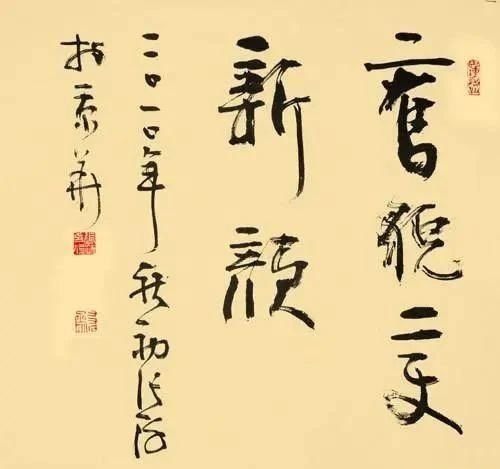 舊貌变
新顏
二〇一〇年秋初
於京華